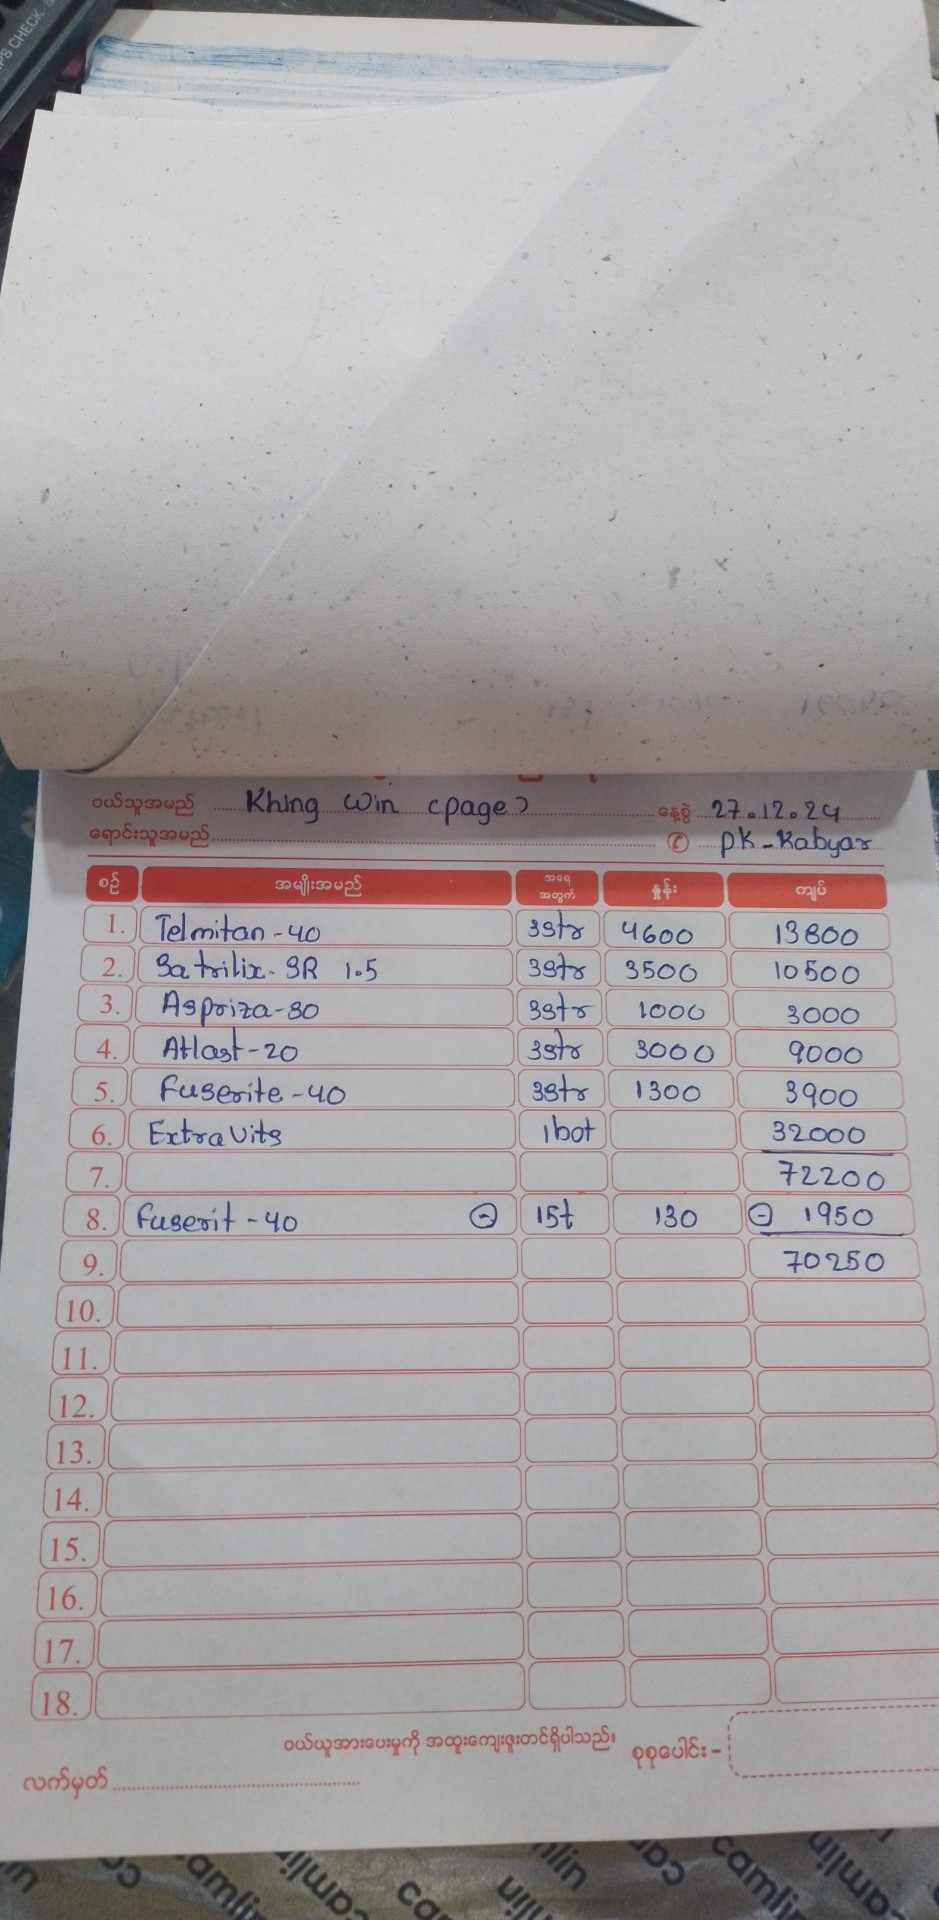 PS CHECK
ဝယ်သူအမည် Khing Win (page) နေ့စွဲ 27.12.24
ရောင်းသူအမည် PK-Kabyar
စဉ် အမျိုးအမည် အရေအတွက် နှုန်း ကျပ်
1. Telmitan-40 3str 4600 13800
2. Satrilix-SR 1.5 3str 3500 10500
3. Aspriza-80 3str 1000 3000
4. Atlast-20 3str 3000 9000
5. Fuserite-40 3str 1300 3900
6. Extravits 1bot 32000
7. 72200
8. Fuserit-40 (-) 15t 130 (-) 1950
9. 70250
10.
11.
12.
13.
14.
15.
16.
17.
18.
ဝယ်ယူအားပေးမှုကို အထူးကျေးဇူးတင်ရှိပါသည်။ စုစုပေါင်း -
လက်မှတ်
camlin camlin camlin camlin